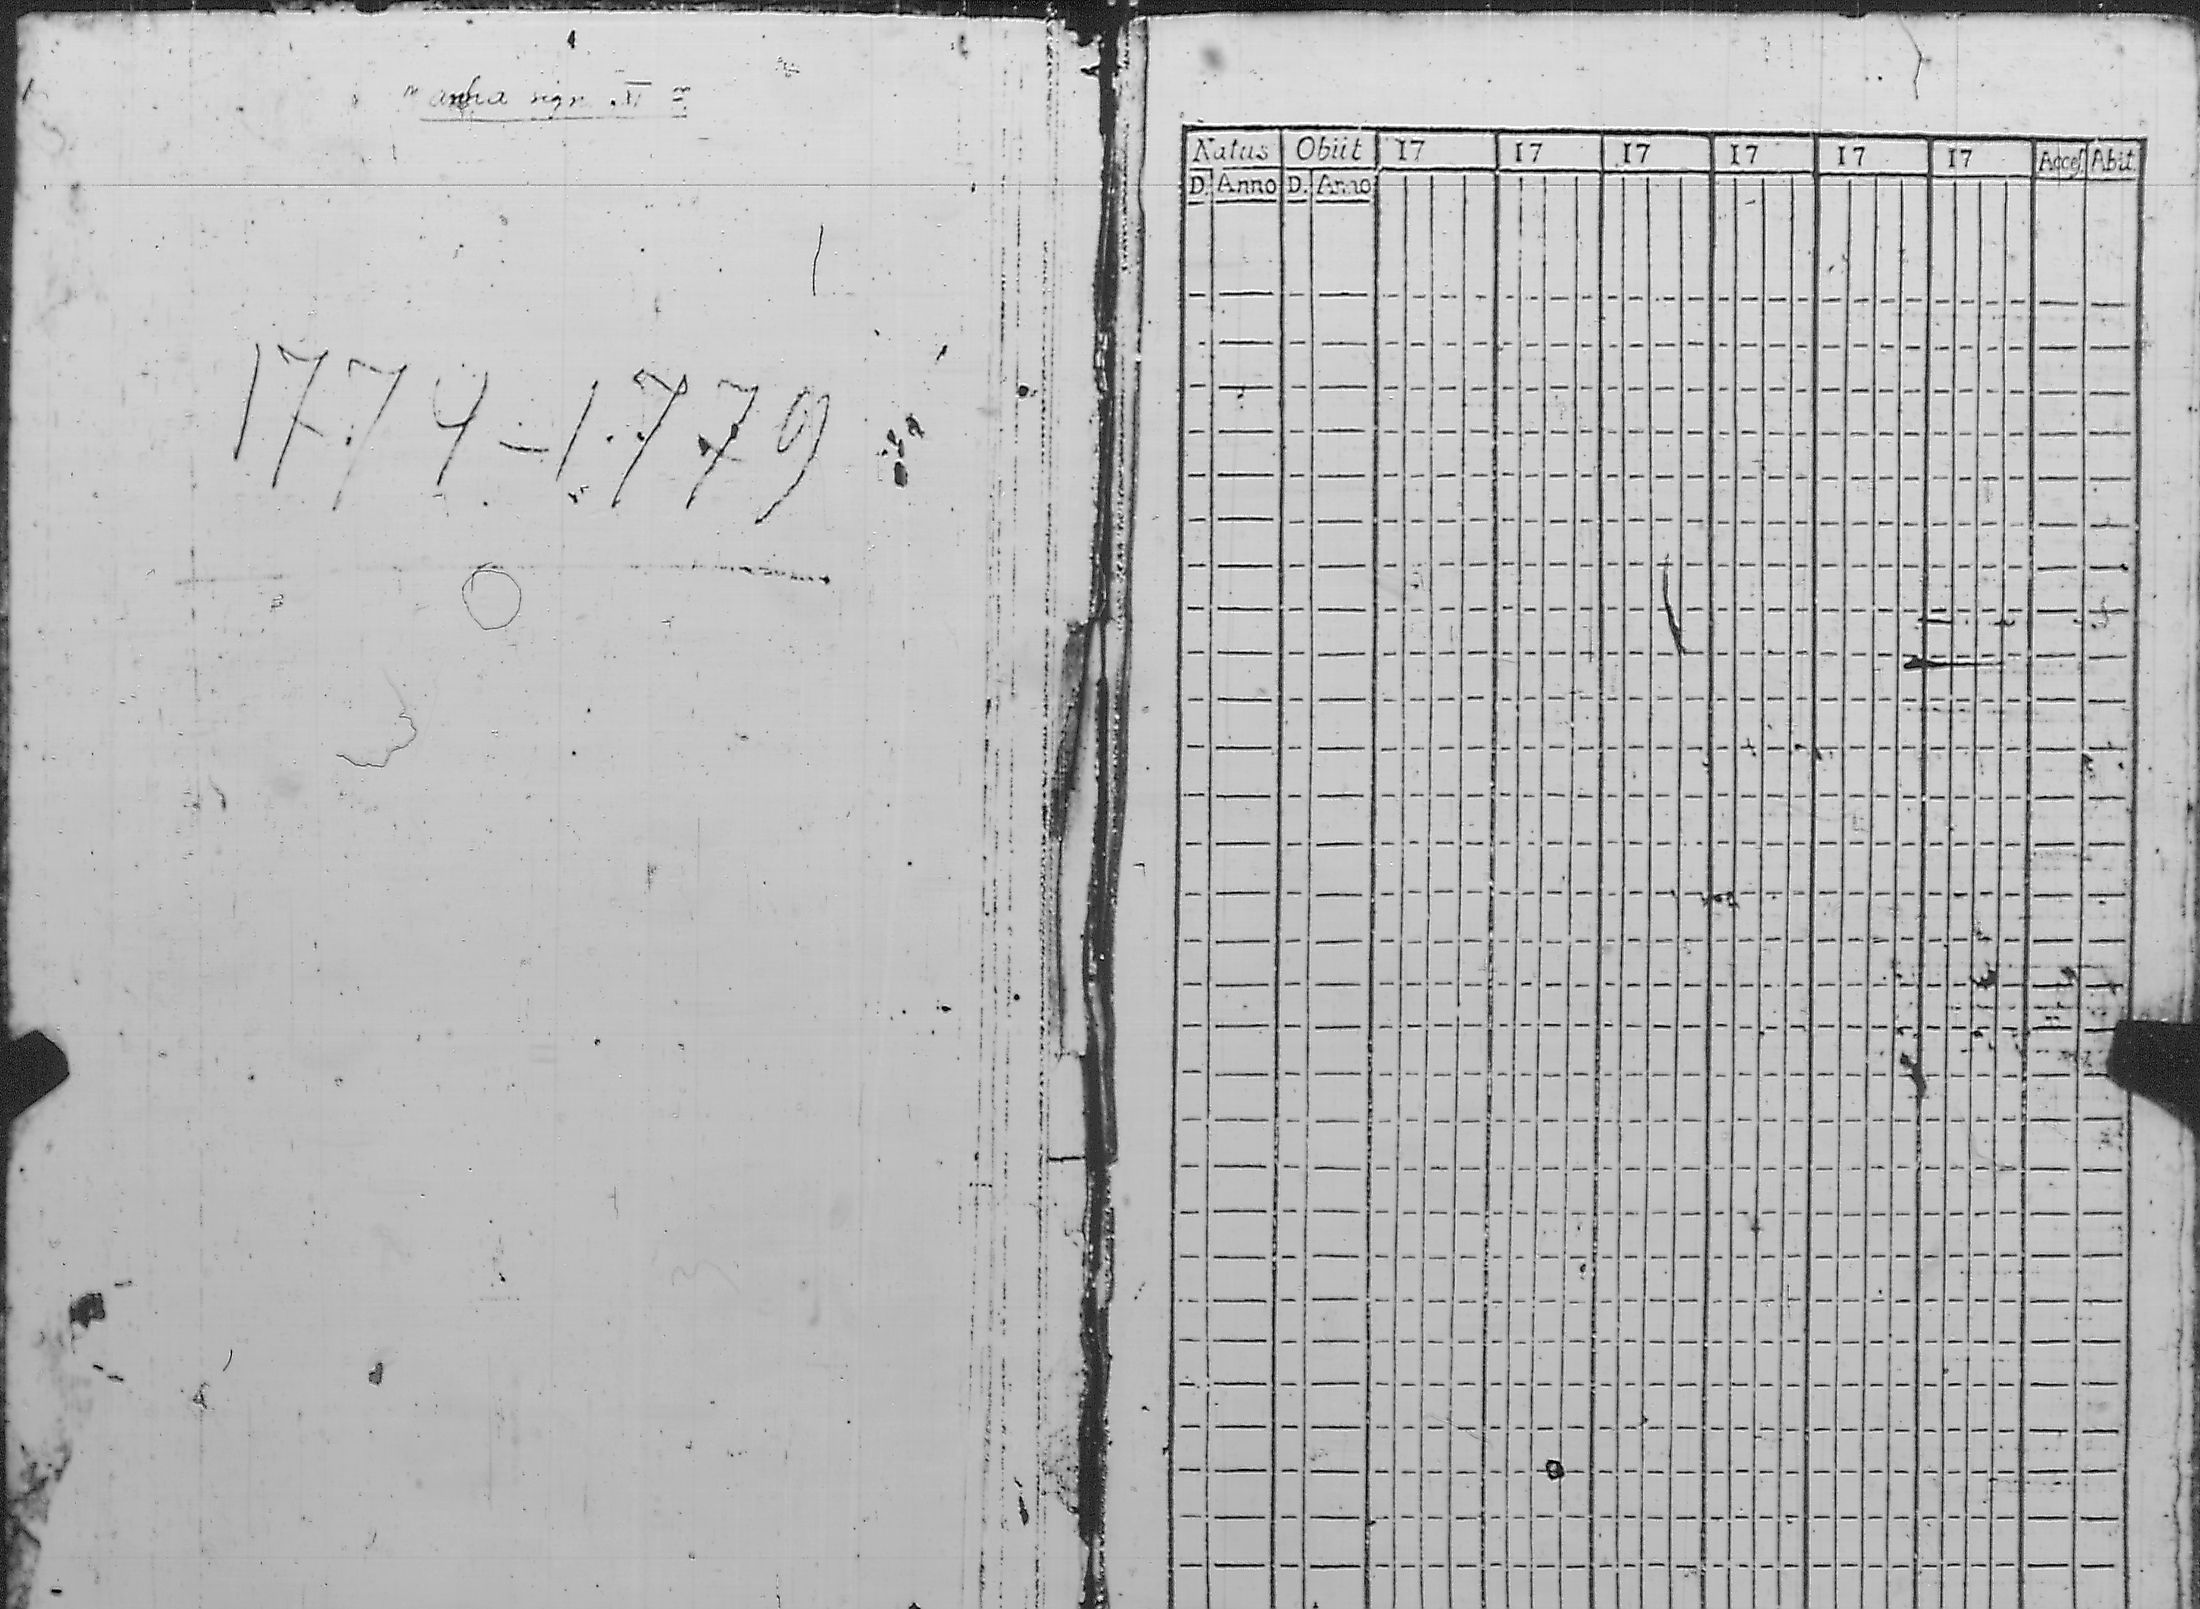 sign. XI
1774-1779
Natus Obiit 17 17 17 17 17 17 Acces. Abit
D. Anno D. Anno